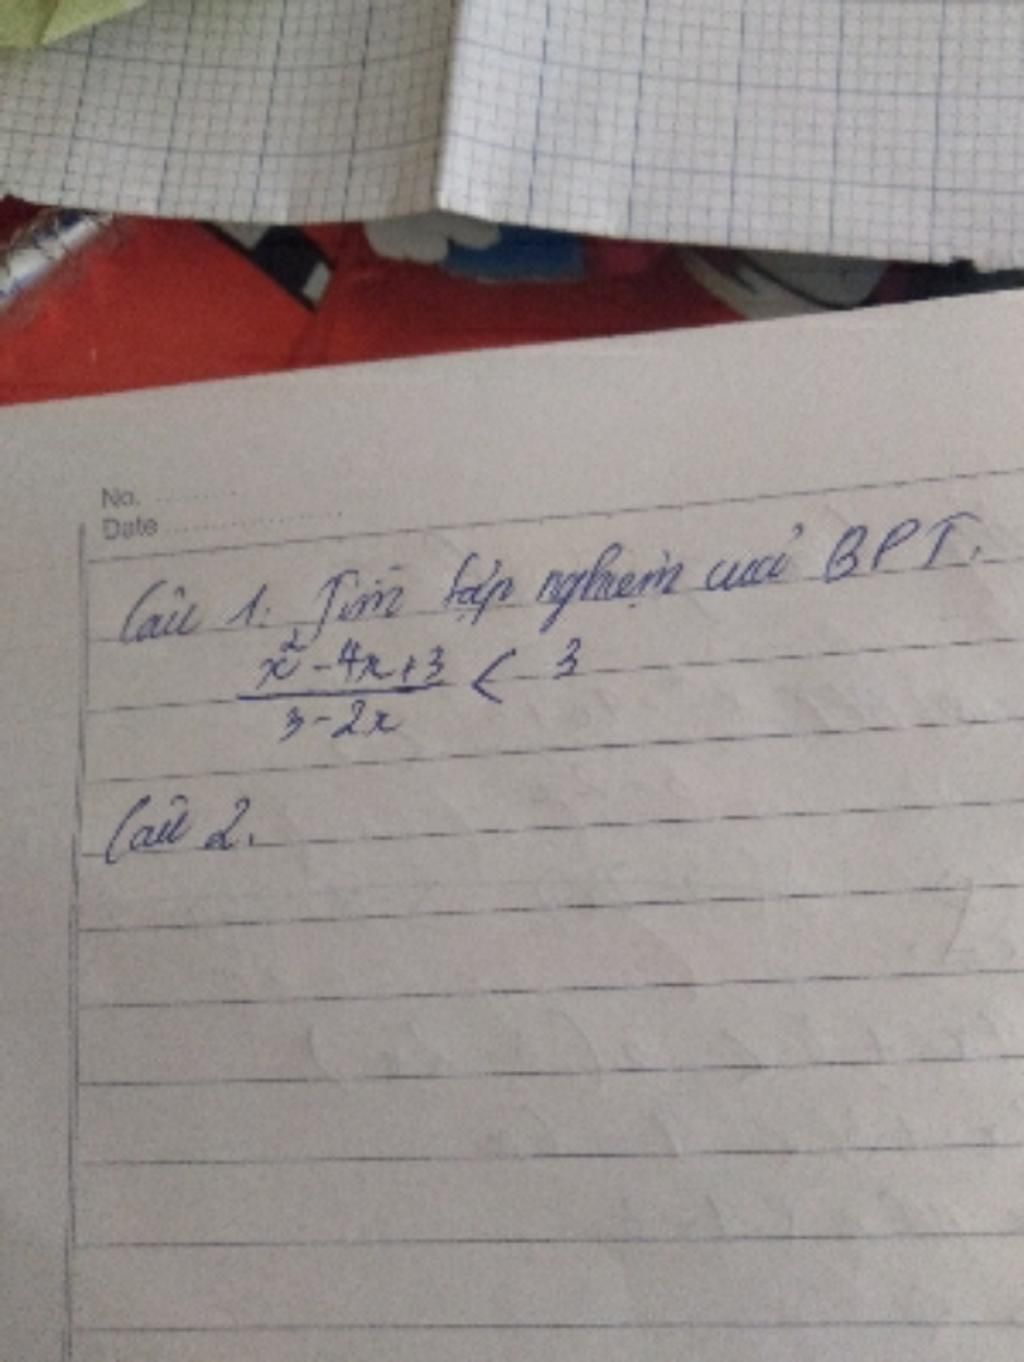 No.
Date
Câu 1: Tìm tập nghiệm của BPT.
x² - 4x + 3 / 3 - 2x < 3
Câu 2.